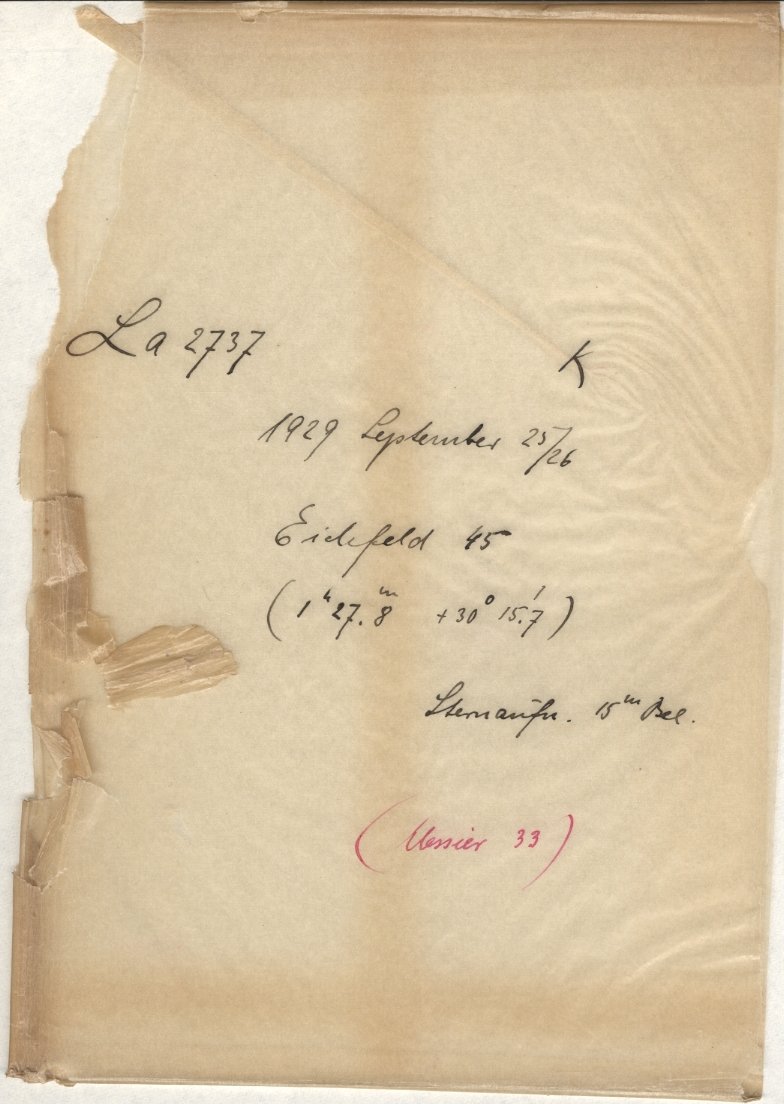 La 2737 K
1929 September 25/26
Eichfeld 45
(1ʰ 27.8ᵐ +30° 15.'7)
Sternaufn. 15ᵐ Bel.
(Messier 33)